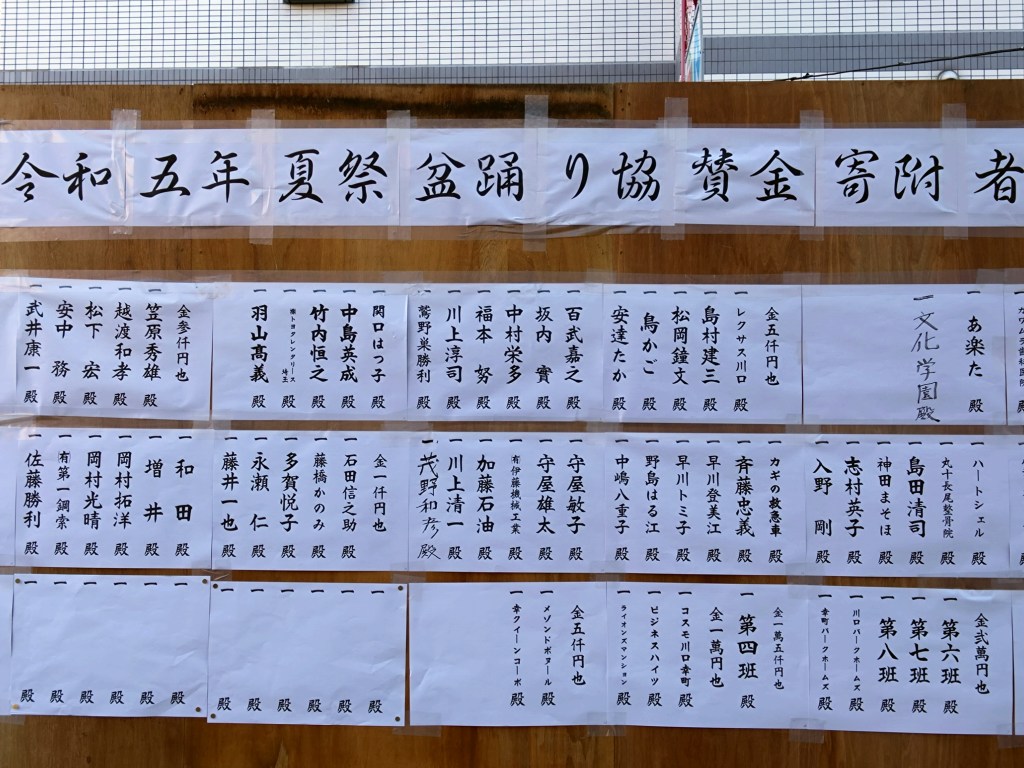 令和五年夏祭盆踊り協賛金寄附者
一 あ楽た 殿
一 文化学園殿
金五仟円也
一 レクサス川口 殿
一 島村建三 殿
一 松岡鐘文 殿
一 鳥かご 殿
一 安達たか 殿
一 百武嘉之 殿
一 坂内實 殿
一 中村栄多 殿
一 福本努 殿
一 川上淳司 殿
一 鷲野巣勝利 殿
一 関口はつ子 殿
一 中島英成 殿
一 竹内恒之 殿
一 ㈱トヨタレンタリース埼玉 殿
一 羽山髙義 殿
金参仟円也
一 笠原秀雄 殿
一 越渡和孝 殿
一 松下宏 殿
一 安中務 殿
一 武井康一 殿
一 ハートシェル 殿
一 丸十長尾整骨院 殿
一 島田清司 殿
一 神田まそほ 殿
一 志村英子 殿
一 入野剛 殿
一 カギの救急車 殿
一 斉藤忠義 殿
一 早川登美江 殿
一 早川トミ子 殿
一 野島はる江 殿
一 中嶋八重子 殿
一 守屋敏子 殿
一 守屋雄太 殿
一 ㈲伊藤機械工業 殿
一 加藤石油 殿
一 川上清一 殿
一 茂野和彦殿
金一仟円也
一 石田信之助 殿
一 藤橋かのみ 殿
一 多賀悦子 殿
一 永瀬仁 殿
一 藤井一也 殿
一 和田 殿
一 増井 殿
一 岡村拓洋 殿
一 岡村光晴 殿
一 ㈲第一鋼索 殿
一 佐藤勝利 殿
金弐萬円也
一 第六班 殿
一 第七班 殿
一 第八班 殿
一 川口パークホームズ 殿
一 幸町パークホームズ 殿
金一萬五仟円也
一 第四班 殿
金一萬円也
一 コスモ川口幸町 殿
一 ビジネスハイツ 殿
一 ライオンズマンション 殿
金五仟円也
一 メゾンドボヌール 殿
一 幸クイーンコーポ 殿
一 殿
一 殿
一 殿
一 殿
一 殿
一 殿
一 殿
一 殿
一 殿
一 殿
一 殿
一 殿